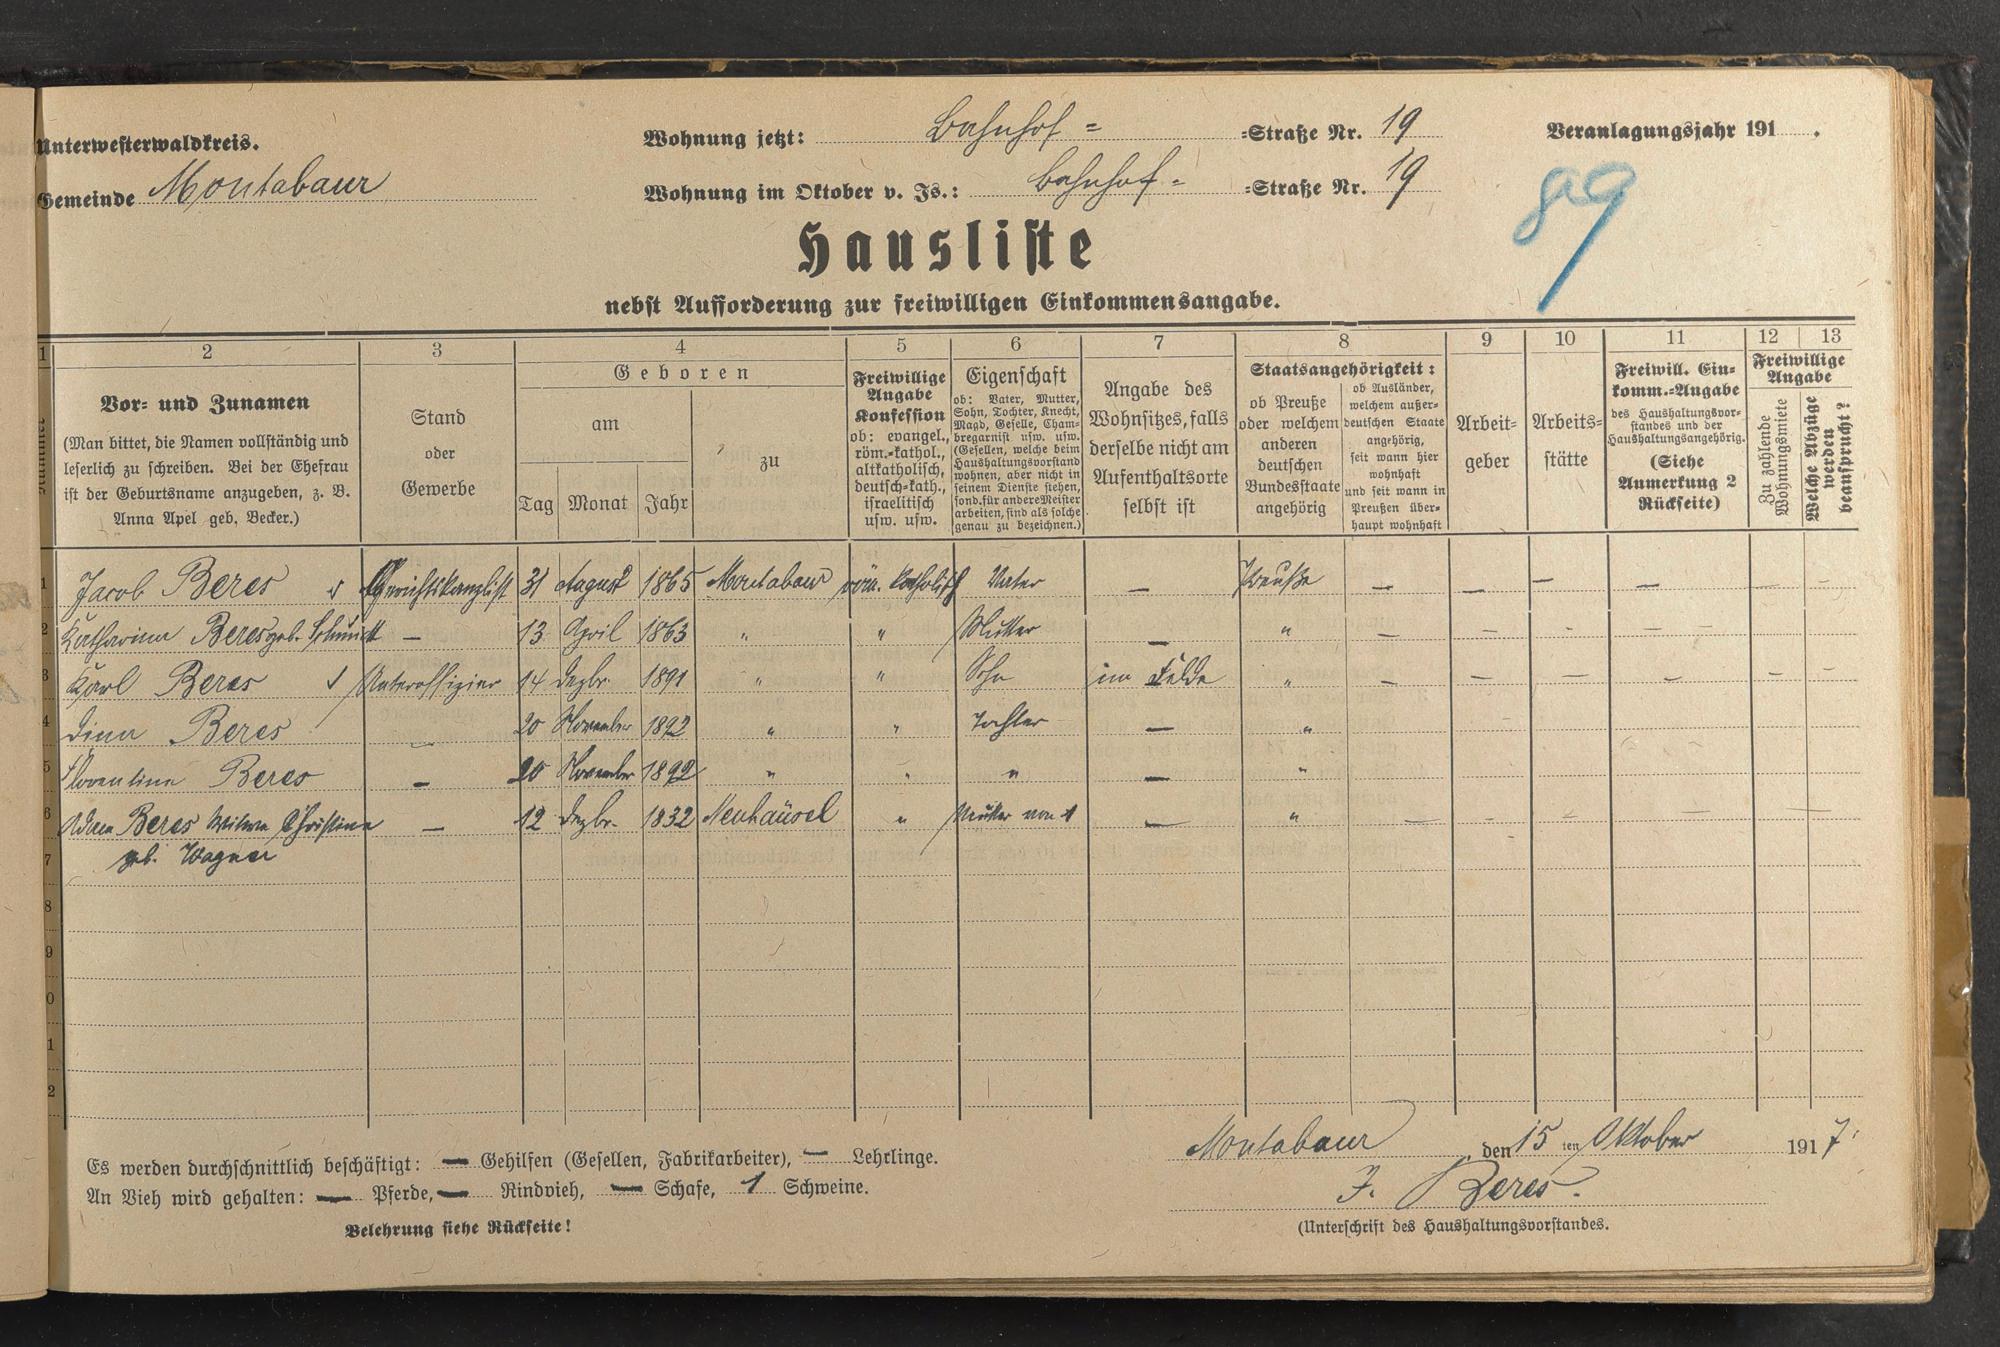 Unterwesterwaldkreis.
Gemeinde Montabaur
Wohnung jetzt: Bahnhof= =Straße Nr. 19
Wohnung im Oktober v. Js.: Bahnhof= =Straße Nr. 19
Veranlagungsjahr 191 .
89
Hausliste
nebst Aufforderung zur freiwilligen Einkommensangabe.
1 2 3 4 5 6 7 8 9 10 11 12 13
Nummer
Vor- und Zunamen
(Man bittet, die Namen vollständig und
leserlich zu schreiben. Bei der Ehefrau
ist der Geburtsname anzugeben, z. B.
Anna Apel geb. Becker.)
Stand
oder
Gewerbe
Geboren
am
zu
Tag Monat Jahr
Freiwillige
Angabe
Konfession
ob: evangel.,
röm.-kathol.,
altkatholisch,
deutsch-kath.,
israelitisch
usw. usw.
Eigenschaft
ob: Vater, Mutter,
Sohn, Tochter, Knecht,
Magd, Geselle, Cham-
bregarnist usw. usw.
(Gesellen, welche beim
Haushaltungsvorstand
wohnen, aber nicht in
seinem Dienste stehen,
sond. für andere Meister
arbeiten, sind als solche
genau zu bezeichnen.)
Angabe des
Wohnsitzes, falls
derselbe nicht am
Aufenthaltsorte
selbst ist
Staatsangehörigkeit:
ob Preuße
oder welchem
anderen
deutschen
Bundesstaate
angehörig
ob Ausländer,
welchem außer-
deutschen Staate
angehörig,
seit wann hier
wohnhaft
und seit wann in
Preußen über-
haupt wohnhaft
Arbeit-
geber
Arbeits-
stätte
Freiwill. Ein-
komm.-Angabe
des Haushaltungsvor-
standes und der
Haushaltungsangehörig.
(Siehe
Anmerkung 2
Rückseite)
Freiwillige
Angabe
Zu zahlende
Wohnungsmiete
Welche Abzüge
werden
beansprucht?
1 Jacob Beres Gerichtskanzlist 31 August 1865 Montabaur röm. katholisch Vater — Preuße — — — —
2 Katharina Beres geb. Schmidt — 13 April 1863 " " Mutter — " — — — — — —
3 Karl Beres Unteroffizier 14 Dezbr. 1891 " " Sohn im Felde " — — — — — —
4 Lina Beres — 20 November 1892 " " Tochter — "
5 Florentine Beres — 20 November 1892 " " " — "
6 Adam Beres Witwe Christine — 12 Dezbr. 1832 Neuhäusel " Mutter von 1 — " — — — — —
7 geb. Wagner
8
9
0
1
2
Es werden durchschnittlich beschäftigt: — Gehilfen (Gesellen, Fabrikarbeiter), — Lehrlinge.
An Vieh wird gehalten: — Pferde, — Rindvieh, — Schafe, 1 Schweine.
Belehrung siehe Rückseite!
Montabaur, den 15 ten Oktober 1917.
J. Beres.
(Unterschrift des Haushaltungsvorstandes.